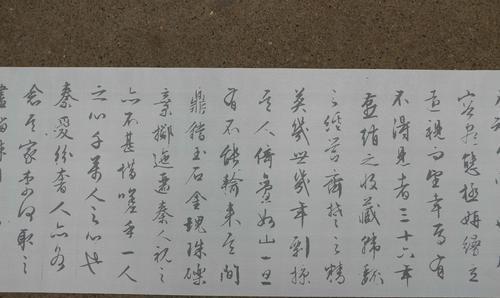 容盡態極妍縵立
遠視而望幸焉有
不得見者三十六年
燕趙之收藏韓魏
之經營齊楚之精
英幾世幾年剽掠
其人倚疊如山一旦
有不能輸來其間
鼎鐺玉石金塊珠礫
棄擲邐迤秦人視之
亦不甚惜嗟乎一人
之心千萬人之心也
秦愛紛奢人亦各
念其家奈何取之
盡錙銖